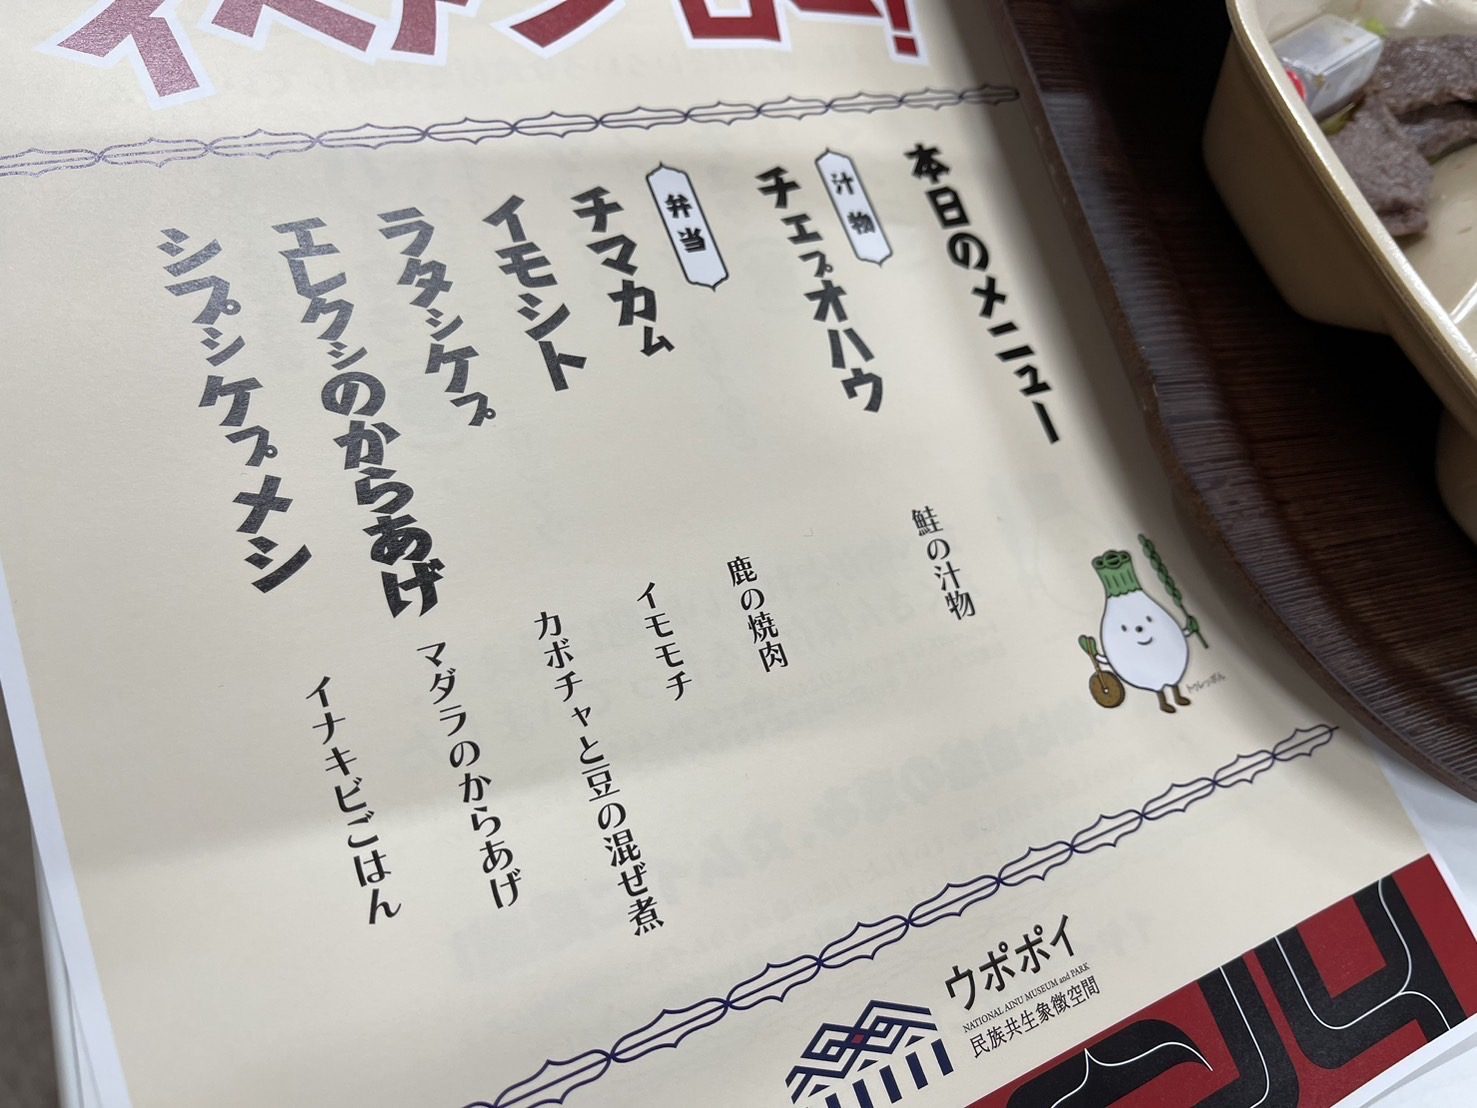 本日のメニュー
汁物
チェㇷ゚オハウ
鮭の汁物
弁当
チマカㇺ
鹿の焼肉
イモシト
イモモチ
ラタㇱケㇷ゚
カボチャと豆の混ぜ煮
エレクㇱのからあげ
マダラのからあげ
シプㇱケㇷ゚メシ
イナキビごはん
トゥレッポん
ウポポイ
NATIONAL AINU MUSEUM and PARK
民族共生象徴空間